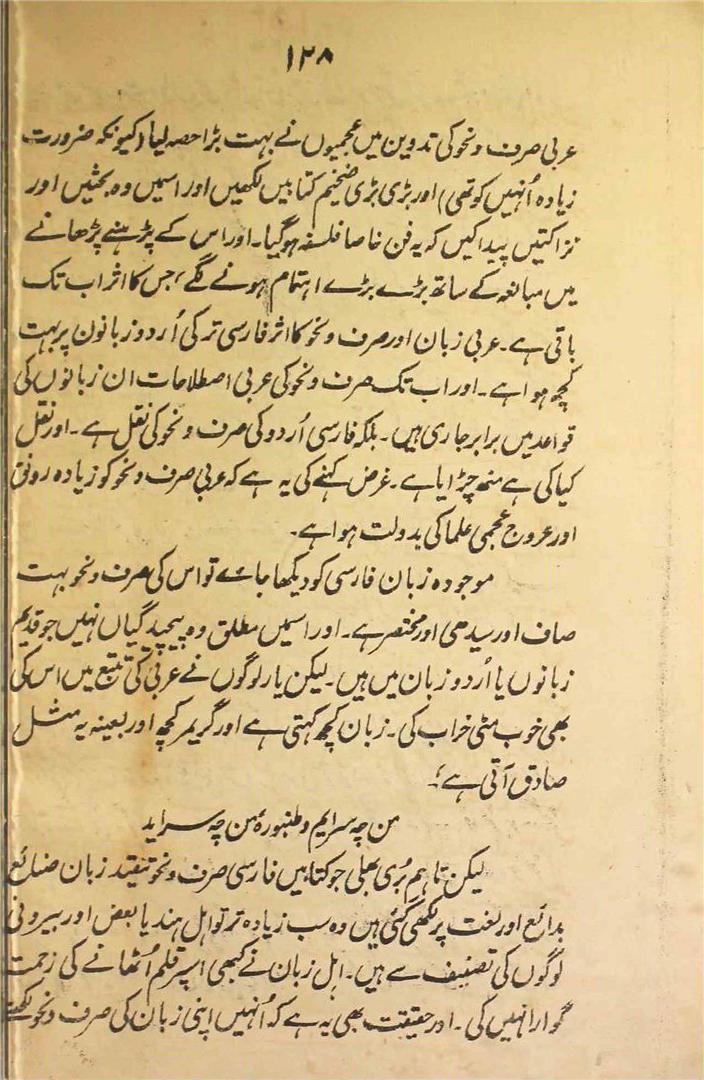 ۱۲۸
عربی صرف و نحو کی تدوین میں عجمیوں نے بہت بڑا حصہ لیا (کیونکہ ضرورت
زیادہ اُنہیں کو تھی) اور بڑی بڑی ضخیم کتابیں لکھیں اور اسمیں وہ بحثیں اور
نزاکتیں پیدا کیں کہ یہ فن خاصا فلسفہ ہو گیا۔ اور اس کے پڑہنے پڑھانے
میں مبالغہ کے ساتھ بڑے بڑے اہتمام ہونے لگے، جس کا اثر اب تک
باقی ہے۔ عربی زبان اور صرف و نحو کا اثر فارسی ترکی اُردو زبانون پر بہت
کچھ ہوا ہے۔ اور اب تک صرف و نحو کی عربی اصطلاحات ان زبانوں کی
قواعد میں برابر جاری ہیں۔ بلکہ فارسی اُردو کی صرف و نحو کی نقل ہے۔ اور نقل
کیا کی ہے منھ چڑایا ہے۔ غرض کہنے کی یہ ہے کہ عربی صرف و نحو کو زیادہ رونق
اور عروج عجمی علما کی بدولت ہوا ہے۔
موجودہ زبان فارسی کو دیکھا جائے تو اس کی صرف و نحو بہت
صاف اور سیدھی اور مختصر ہے۔ اور اسمیں مطلق وہ پیچیدگیاں نہیں جو قدیم
زبانوں یا اُردو زبان میں ہیں۔ لیکن یار لوگوں نے عربی کی تتبع میں اس کی
بھی خوب مٹی خراب کی۔ زبان کچھ کہتی ہے اور گریمر کچھ اور بعینہ یہ مثل
صادق آتی ہے؛
من چہ سرایم و طنبورۂ من چہ سراید
لیکن تاہم بُری بھلی جو کتابیں فارسی صرف و نحو تنقید زبان ضائع
بدائع اور لغت پر لکھی گئی ہیں وہ سب زیادہ تر تو اہل ہند یا بعض اور بیرونی
لوگوں کی تصنیف سے ہیں۔ اہل زبان نے کبھی اسپر قلم اُٹھانے کی زحمت
گوارا نہیں کی۔ اور حقیقت بھی یہ ہے کہ اُنہیں اپنی زبان کی صرف و نحو لکھنے